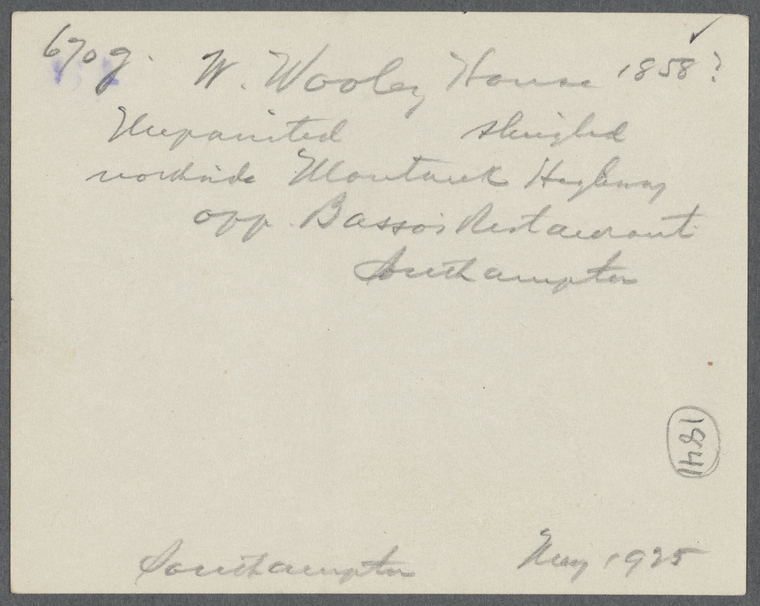 670g. W. Wooley House 1858?
Unpainted shingled
northside Montauk Highway
opp. Basso's Restaurant
Southampton
1841
Southampton May 1925